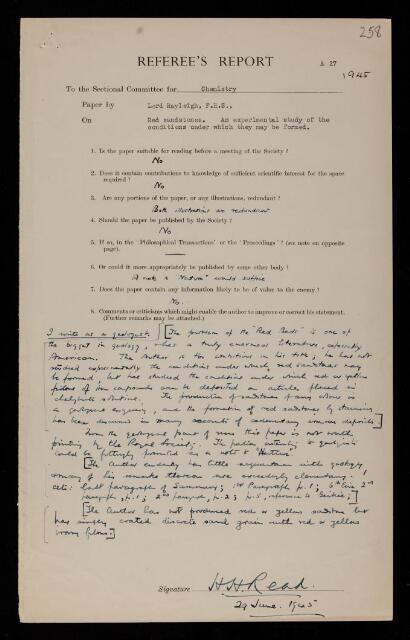 258
REFEREE'S REPORT
A 27
1945
To the Sectional Committee for Chemistry
Paper by Lord Rayleigh, F.R.S.,
On Red sandstones. An experimental study of the
conditions under which they may be formed.
1. Is the paper suitable for reading before a meeting of the Society ?
No
2. Does it contain contributions to knowledge of sufficient scientific interest for the space
required ?
No
3. Are any portions of the paper, or any illustrations, redundant ?
Both illustrations are redundant
4. Should the paper be published by the Society ?
No
5. If so, in the 'Philosophical Transactions' or the 'Proceedings' ? (see note on opposite
page).
6. Or could it more appropriately be published by some other body ?
A note in "Nature" would suffice
7. Does the paper contain any information likely to be of value to the enemy ?
No.
8. Comments or criticisms which might enable the author to improve or correct his statement.
(Further remarks may be attached.)
I write as a geologist. [The problem of the "Red Beds" is one of
the biggest in geology, & has a truly enormous literature, especially
American. The Author is too ambitious in his title; he has not
studied experimentally the conditions under which red sandstones may
be formed, but has studied the conditions under which red or yellow
films of iron compounds can be deposited on articles placed in
chalybeate solutions. The production of sandstones of any colour is
a geological enquiry, and the formation of red sandstones by staining
has been discussed in many accounts of sedimentary deposits.]
From the geological point of view this paper is not worth
printing by the Royal Society. The portion interesting to geologists
could be fittingly provided as a note to "Nature"
[The Author evidently has little acquaintance with geology
& many of his remarks thereon are exceedingly elementary.
last paragraph of Summary; 1st Paragraph p.1;
paragraph, p.1; 2nd paragraph, p.2; p.5, reference to Geikie;]
[The Author has not produced red or yellow sandstone but
has simply coated discrete sand grains with red or yellow
films.]
Signature H H Read.
29 June. 1945